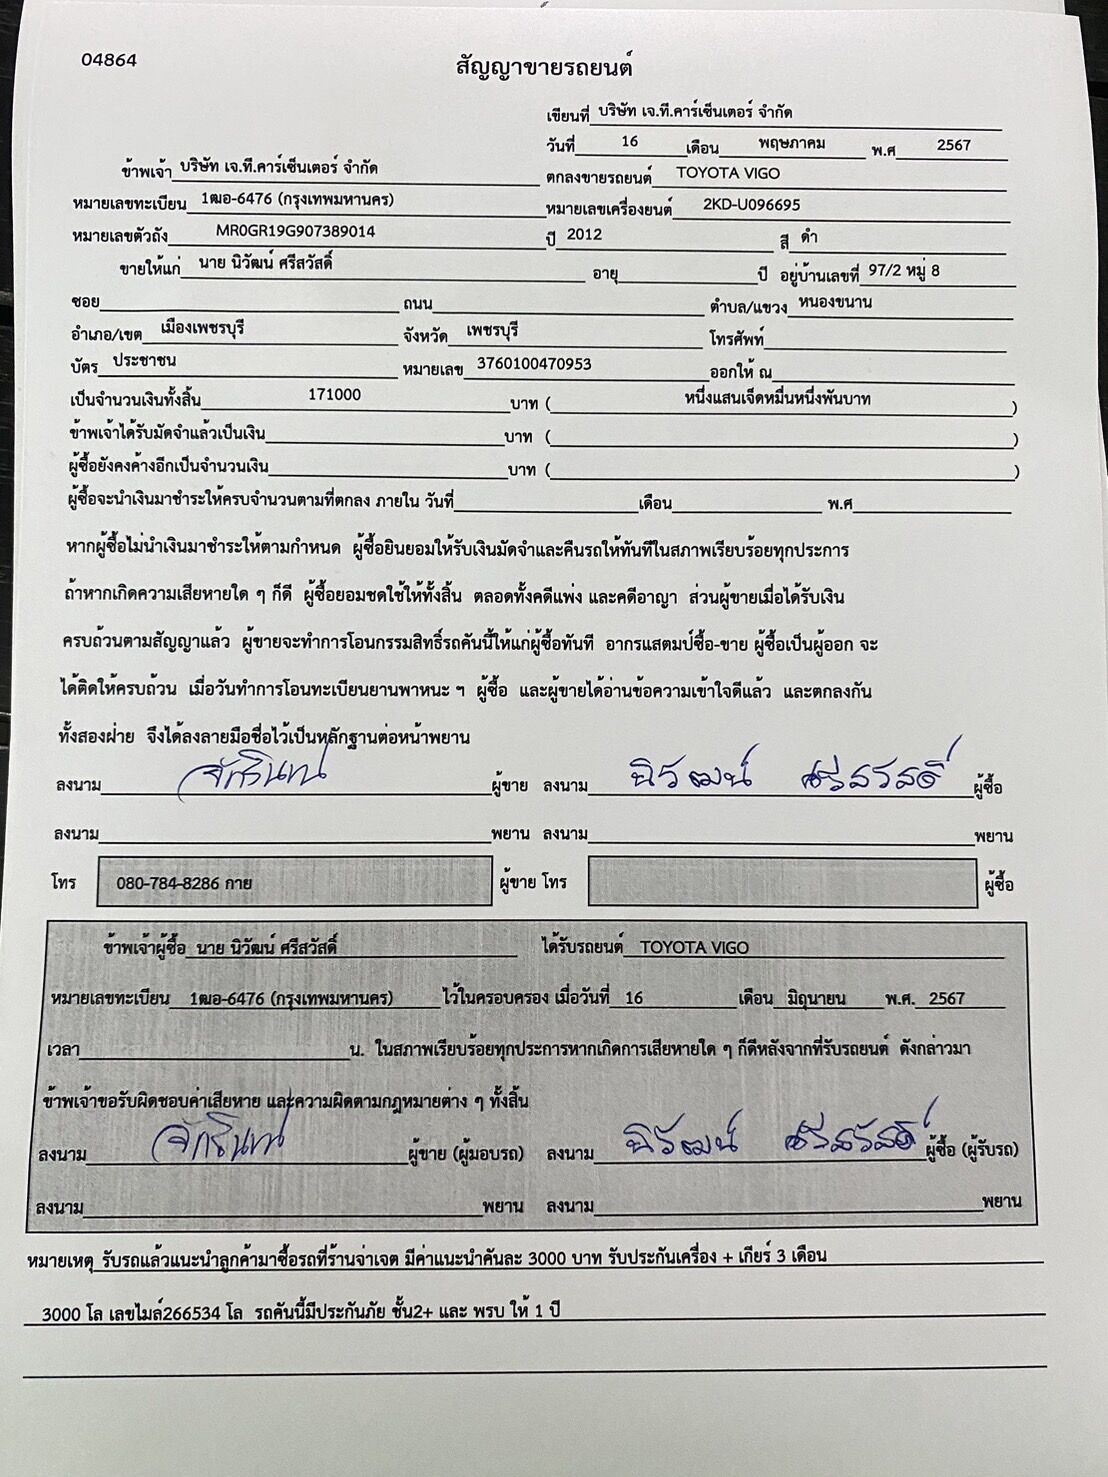 04864
สัญญาขายรถยนต์
เขียนที่ บริษัท เจ.ที.คาร์เซ็นเตอร์ จำกัด
วันที่ 16 เดือน พฤษภาคม พ.ศ 2567
ข้าพเจ้า บริษัท เจ.ที.คาร์เซ็นเตอร์ จำกัด ตกลงขายรถยนต์ TOYOTA VIGO
หมายเลขทะเบียน 1ฒอ-6476 (กรุงเทพมหานคร) หมายเลขเครื่องยนต์ 2KD-U096695
หมายเลขตัวถัง MR0GR19G907389014 ปี 2012 สี ดำ
ขายให้แก่ นาย นิวัฒน์ ศรีสวัสดิ์ อายุ ปี อยู่บ้านเลขที่ 97/2 หมู่ 8
ซอย ถนน ตำบล/แขวง หนองขนาน
อำเภอ/เขต เมืองเพชรบุรี จังหวัด เพชรบุรี โทรศัพท์
บัตร ประชาชน หมายเลข 3760100470953 ออกให้ ณ
เป็นจำนวนเงินทั้งสิ้น 171000 บาท ( หนึ่งแสนเจ็ดหมื่นหนึ่งพันบาท )
ข้าพเจ้าได้รับมัดจำแล้วเป็นเงิน บาท ( )
ผู้ซื้อยังคงค้างอีกเป็นจำนวนเงิน บาท ( )
ผู้ซื้อจะนำเงินมาชำระให้ครบจำนวนตามที่ตกลง ภายใน วันที่ เดือน พ.ศ
หากผู้ซื้อไม่นำเงินมาชำระให้ตามกำหนด ผู้ซื้อยินยอมให้รับเงินมัดจำและคืนรถให้ทันทีในสภาพเรียบร้อยทุกประการ
ถ้าหากเกิดความเสียหายใด ๆ ก็ดี ผู้ซื้อยอมชดใช้ให้ทั้งสิ้น ตลอดทั้งคดีแพ่ง และคดีอาญา ส่วนผู้ขายเมื่อได้รับเงิน
ครบถ้วนตามสัญญาแล้ว ผู้ขายจะทำการโอนกรรมสิทธิ์รถคันนี้ให้แก่ผู้ซื้อทันที อากรแสตมป์ซื้อ-ขาย ผู้ซื้อเป็นผู้ออก จะ
ได้ติดให้ครบถ้วน เมื่อวันทำการโอนทะเบียนยานพาหนะ ฯ ผู้ซื้อ และผู้ขายได้อ่านข้อความเข้าใจดีแล้ว และตกลงกัน
ทั้งสองฝ่าย จึงได้ลงลายมือชื่อไว้เป็นหลักฐานต่อหน้าพยาน
ลงนาม จักรินทน์ ผู้ขาย ลงนาม นิวัฒน์ ศรีสวัสดิ์ ผู้ซื้อ
ลงนาม พยาน ลงนาม พยาน
โทร 080-784-8286 กาย ผู้ขาย โทร ผู้ซื้อ
ข้าพเจ้าผู้ซื้อ นาย นิวัฒน์ ศรีสวัสดิ์ ได้รับรถยนต์ TOYOTA VIGO
หมายเลขทะเบียน 1ฒอ-6476 (กรุงเทพมหานคร) ไว้ในครอบครอง เมื่อวันที่ 16 เดือน มิถุนายน พ.ศ. 2567
เวลา น. ในสภาพเรียบร้อยทุกประการหากเกิดการเสียหายใด ๆ ก็ดีหลังจากที่รับรถยนต์ ดังกล่าวมา
ข้าพเจ้าขอรับผิดชอบค่าเสียหาย และความผิดตามกฎหมายต่าง ๆ ทั้งสิ้น
ลงนาม จักรินทน์ ผู้ขาย (ผู้มอบรถ) ลงนาม นิวัฒน์ ศรีสวัสดิ์ ผู้ซื้อ (ผู้รับรถ)
ลงนาม พยาน ลงนาม พยาน
หมายเหตุ รับรถแล้วแนะนำลูกค้ามาซื้อรถที่ร้านจ่าเจต มีค่าแนะนำคันละ 3000 บาท รับประกันเครื่อง + เกียร์ 3 เดือน
3000 โล เลขไมล์266534 โล รถคันนี้มีประกันภัย ชั้น2+ และ พรบ ให้ 1 ปี